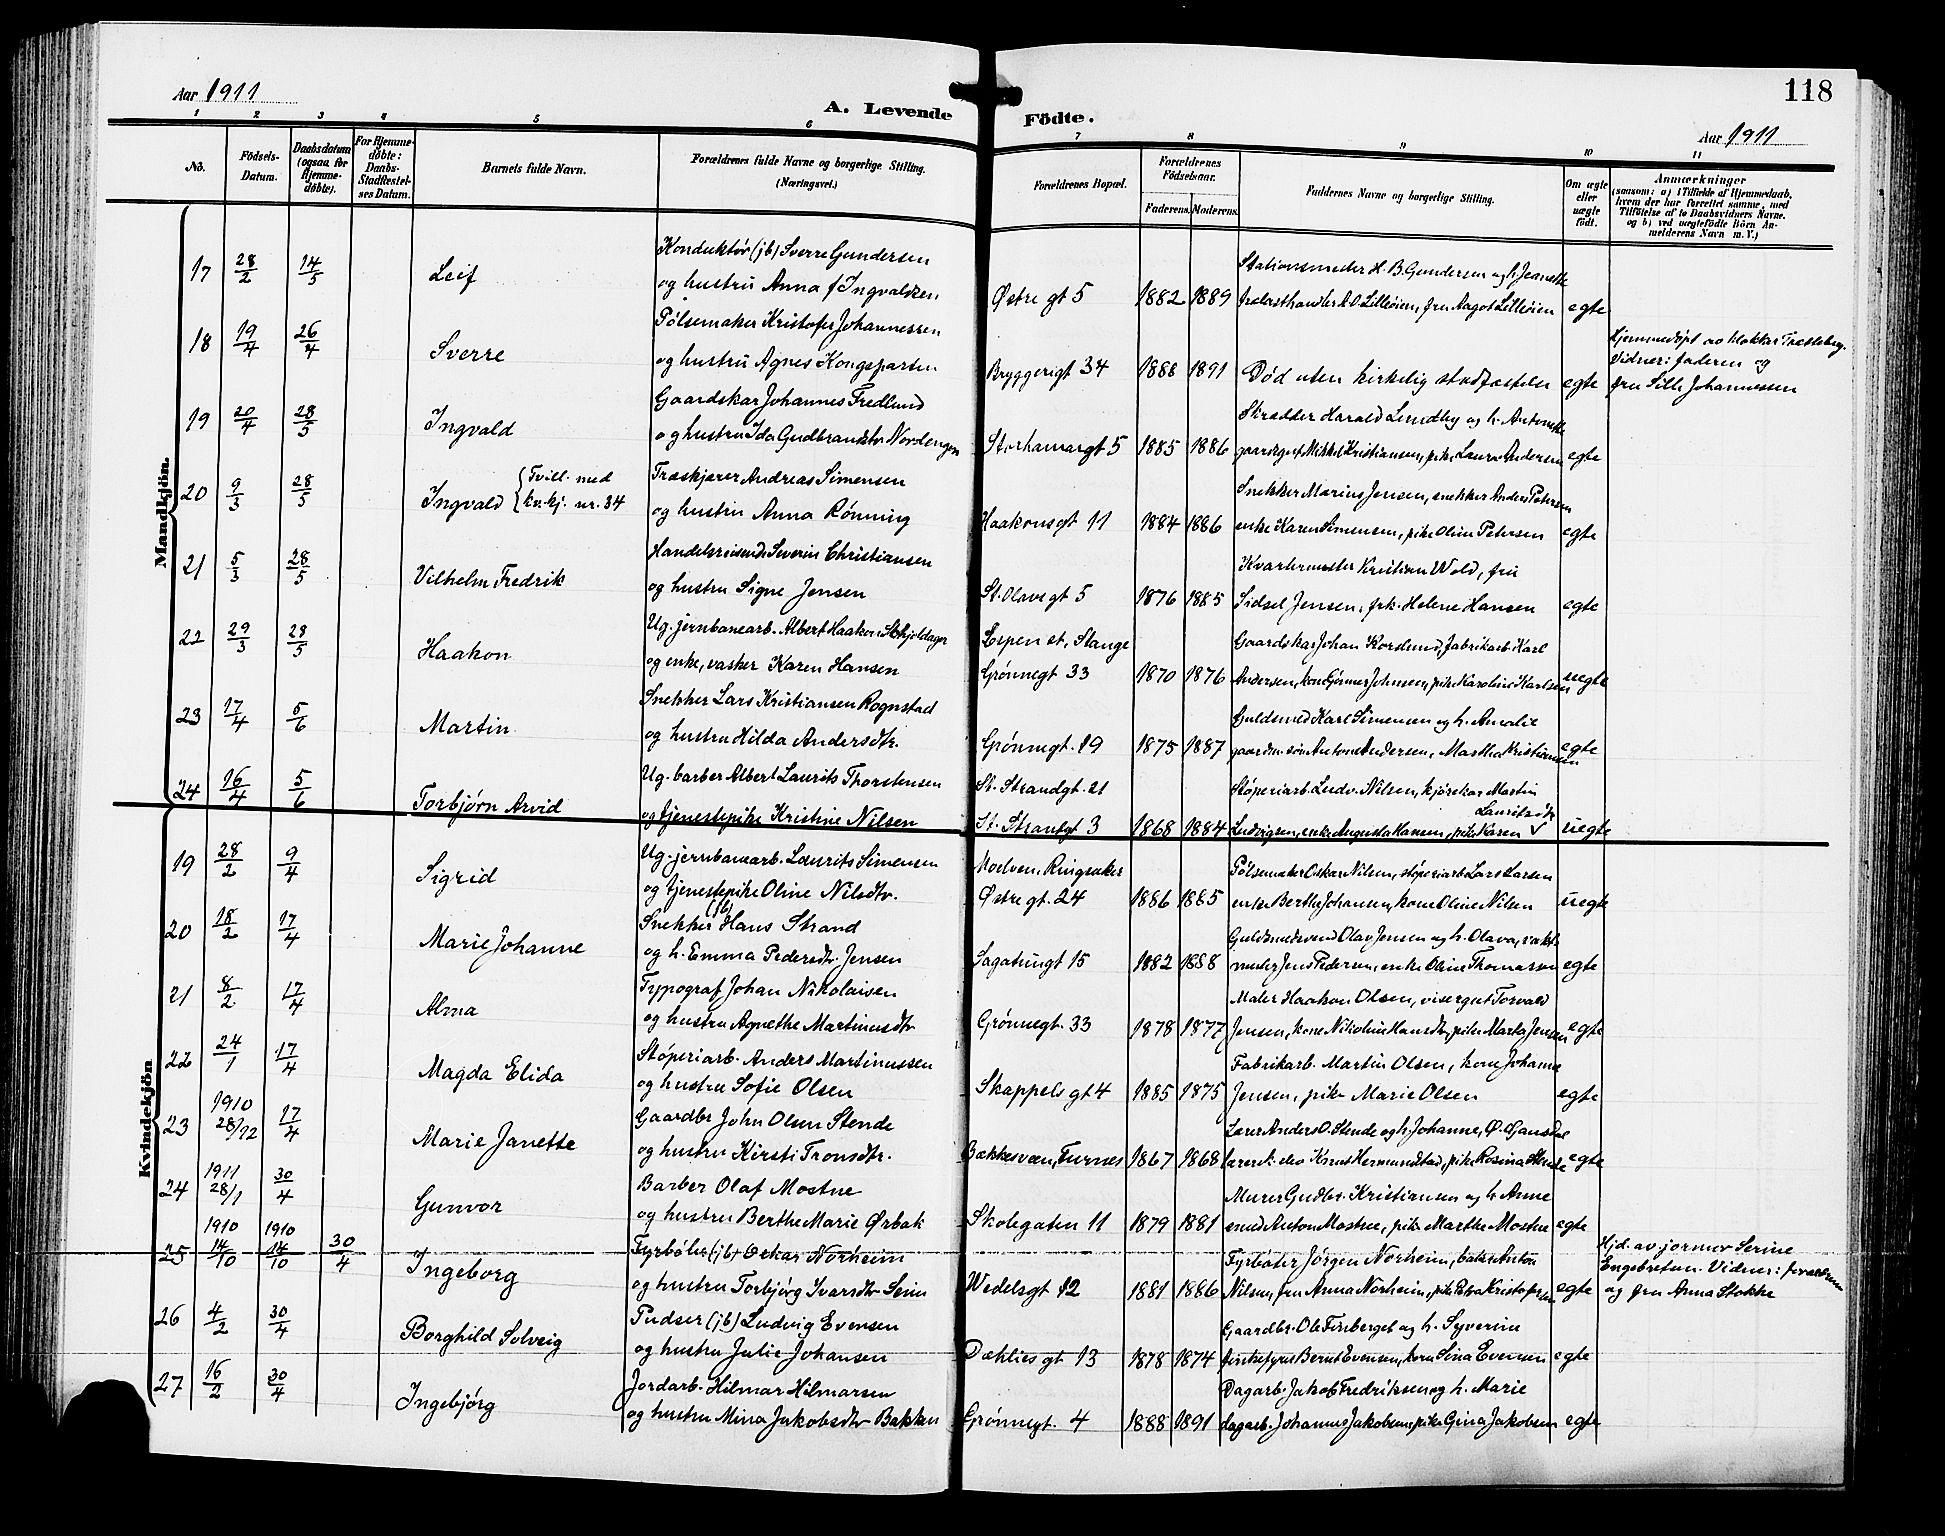 118
Aar 1911
A. Levende Födte.
Aar 1911
1 2 3 4 5 6 7 8 9 10 11
No.
Födsels-Datum.
Daabsdatum (ogsaa for Hjemme-döbte).
For Hjemme-döbte: Daabs-Stadfæstel-ses Datum.
Barnets fulde Navn.
Forældrenes fulde Navne og borgerlige Stilling. (Næringsvei.)
Forældrenes Bopæl.
Forældrenes Födselsaar.
Faderens. Moderens.
Faddernes Navne og borgerlige Stilling.
Om ægte eller uægte födt.
Anmærkninger
(saasom: a) i Tilfælde af Hjemmedaab,
hvem der har forrettet samme, med
Tilföielse af to Daabsvidners Navne.
og b) ved uægtefödte Börn An-
melderens Navn m. V.)
Mandkjön.
17 28/2 14/5 Leif
Konduktør (jb) Sverre Gundersen
og hustru Anna f Ingvaldsen
Østre gt 5 1882 1889
Stationsmester H. B. Gundersen og h. Jeanette
A. O. Lilleöien, fru Aagot Lilleöien egte
18 19/4 26/4 Sverre
Pølsemaker Kristofer Johannessen
og hustru Agnes Kongsparten
Bryggerigt 34 1888 1891
Död uten kirkelig stadfæstelse egte
Hjemmedöpt av klokker
Vidner: faderen og
fru Johannessen
19 20/4 28/5 Ingvald
Gaardskar Johannes Fredlund
og hustru Ida Gudbrandsdtr Nordengen
Storhamargt 5 1885 1886
Skrædder Harald Lundby og h. Antonette
gaardeger Mikkel Kristiansen, pike Laura Andersen egte
20 9/3 28/5 Ingvald { Tvill. med
kv.kj. nr. 34
Træskjærer Andreas Simensen
og hustru Anna Rönning
Haakonsgt 11 1884 1886
Snekker Marius Jensen, snekker Anders Petersen
enke Karen Simensen, pike Oline Petersen egte
21 5/3 28/5 Vilhelm Fredrik
Handelsreisende Severin Christiansen
og hustru Signe Jensen
St. Olavsgt 5 1876 1885
Kvartermester Kristian Wold, fru
Sidsel Jensen, frk. Helene Hansen egte
22 29/3 28/5 Haakon
Ug. jernbanearb. Albert Haakon Skjoldager
og enke, vasker Karen Hansen
Espen st, Stange
Grönnegt 33 1870 1876
Gaardskar Johan Korslund, fabrikarb Karl
Andersen, kone Gunnor Johnsen, pike Karoline Karlsen uegte
23 17/4 5/6 Martin
Snekker Lars Kristiansen Rognstad
og hustru Hilda Andersdtr.
Grönnegt. 19 1875 1887
Guldsmed Karl Simensen og h. Amalie
gaardm. sön Anton Andersen, Martha Kristiansen egte
24 16/4 5/6 Torbjörn Arvid
Ug. barber Albert Laurits Thorstensen
og tjenestepike Kristine Nilsen
St. Strandgt. 21
St. Strandgt 3 1868 1884
Stöperiarb. Ludv. Nilsen, kjörekar Martin
Ludvigsen, enke Augusta Hansen, pike Karen Lauritsdtr uegte
Kvindekjön
19 28/2 9/4 Sigrid
Ug. jernbanearb. Laurits Simensen
og tjenestepike Oline Nilsdtr.
Moelven, Ringsaker
Østre gt. 24 1886 1885
Pölsemaker Oskar Nilsen, stöperiarb Lars Larsen
enke Berthe Johansen, kone Oline Nilsen uegte
20 18/2 17/4 Marie Johanne
Snekker (jb) Hans Strand
og h. Emma Pedersdtr. Jensen
Sagatungt 15 1882 1888
Guldsmedsvend Olav Jensen og h. Olava, vakt-
mester Jens Pedersen, enke Oline Thomassen egte
21 8/2 17/4 Alma
Typograf Johan Nikolaisen
og hustru Agnethe Martinusdtr
Grönnegt. 33 1878 1877
Maler Haakon Olsen, visergut Torvald
Jensen, kone Nikoline Hansdtr, pike Marta Jensen egte
22 24/1 17/4 Magda Elida
Stöperiarb. Anders Martinussen
og hustru Sofie Olsen
Skappels gt 4 1885 1875
Fabrikarb. Martin Olsen, kone Johanne
Jensen, pike Marie Olsen egte
23 1910 28/12 17/4 Marie Janette
Gaardbr John Olsen Stende
og hustru Kirsti Tronsdtr.
Bækkesveen, Furnes 1867 1868
Lærer Anders O. Stende og h. Johanne, Ø. Gausdal
lærersk. elev Knut Hermundstad, pike Rosina Stende egte
24 1911 28/1 30/4 Gunvor
Barber Olaf Mostue
og hustru Berthe Marie Ørbak
Skolegaten 11 1879 1881
Murer Gudbr. Kristiansen og h. Anne
smed Anton Mostue, pike Marthe Mostue egte
25 1910 14/10 1910 14/10 30/4 Ingeborg
Fyrböter (jb) Oskar Norheim
og hustru Torbjörg Ivarsdtr Seim
Wedelsgt 12 1881 1886
Fyrböter Jörgen Norheim, baker Anton
Nilsen, fru Anna Norheim, pike Petra Kristofersen egte
Hjd. av jormor Serine
Engebretsen. Vidner: forældrene
og fru Anna Stokke
26 4/2 30/4 Borghild Solveig
Pudser (jb) Ludvig Evensen
og hustru Julie Johansen
Dæhlies gt 13 1878 1874
Gaardbr. Ole Finberget og h. Syverine
Bernt Evensen, kone Sina Evensen egte
27 16/2 30/4 Ingebjörg
Jordarb. Hilmar Hilmarsen
og hustru Mina Jakobsdtr Bakken
Grönnegt. 4 1888 1891
Dagarb. Jakob Fredriksen og h. Marie
dagarb. Johannes Jakobsen, pike Gina Jakobsen egte